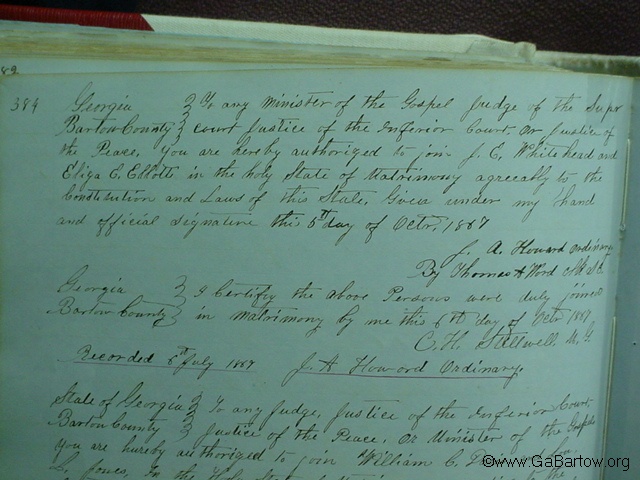 89
384 Georgia } To any Minister of the Gospel Judge of the Supr
Bartow County } Court Justice of the Inferior Court. Or Justice of
the Peace. You are hereby authorized to join J. E. Whitehead and
Eliza C. Ellotts in the holy State of Matrimony agreeably to the
Constitution and Laws of this State. Given under my hand
and official signature this 5th day of Octr. 1867
J. A. Howard Ordinary
By Thomas A Word
Georgia } I Certify the above Persons were duly joined
Bartow County } in Matrimony by me this 6th day of Octr 1867
C. H. Stillwell M. G
Recorded July 1867 J. A Howard Ordinary
State of Georgia } To any Judge, Justice of the Inferior Court
Bartow County } Justice of the Peace, Or Minister of the Gospel
You are hereby authorized to join William C.
L. Jones, In the Holy State
©www.GaBartow.org